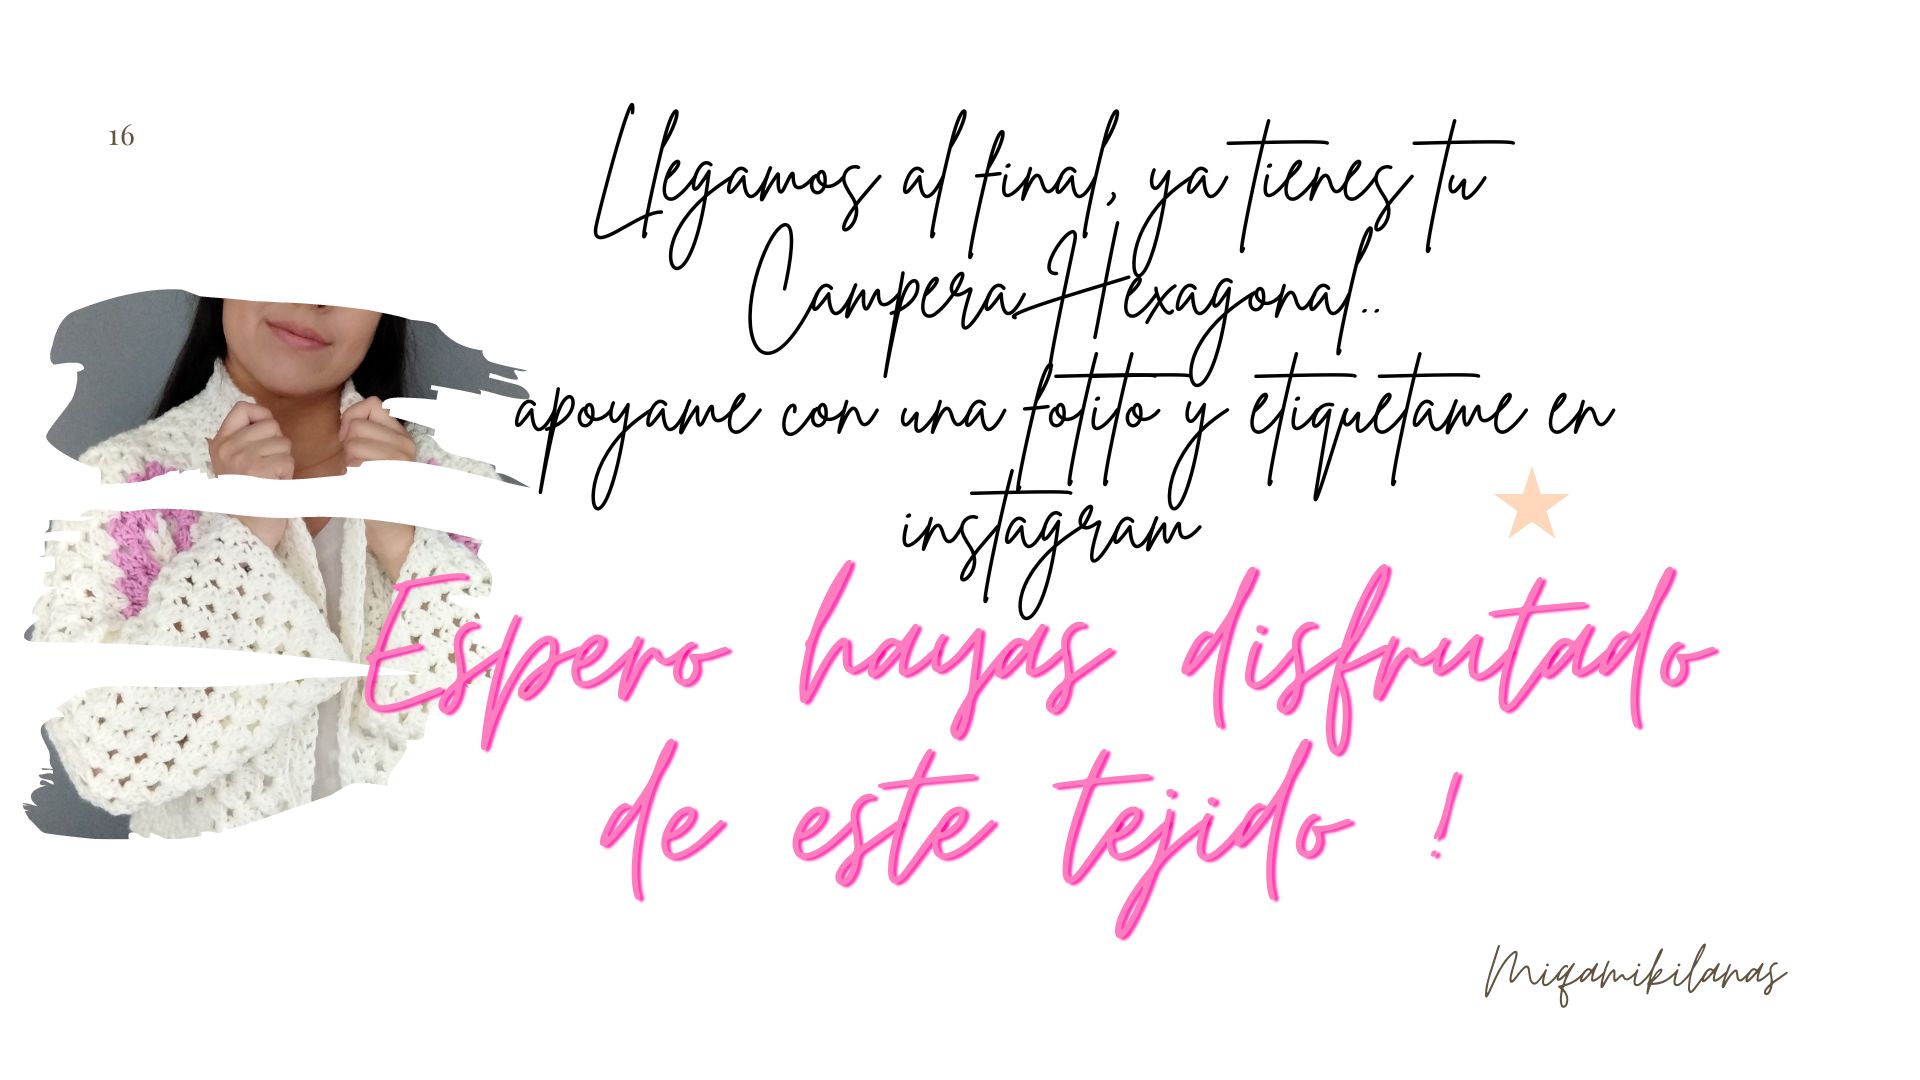 16
Llegamos al final, ya tienes tu
Campera Hexagonal..
apoyame con una fotito y etiquetame en
instagram
Espero hayas disfrutado
de este tejido !
Miqamikilanas